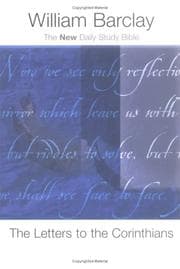 William Barclay
The New Daily Study Bible
Now we see only reflections
mirror which leave us with
but
to solve, but
we shall see face to face.
The Letters to the Corinthians